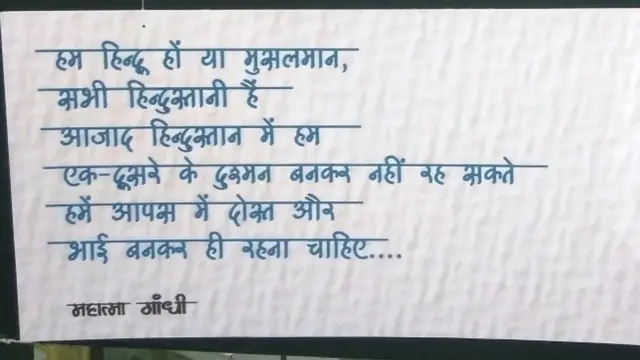 हम हिन्दू हों या मुसलमान,
सभी हिन्दुस्तानी हैं
आजाद हिन्दुस्तान में हम
एक-दूसरे के दुश्मन बनकर नहीं रह सकते
हमें आपस में दोस्त और
भाई बनकर ही रहना चाहिए....
महात्मा गाँधी